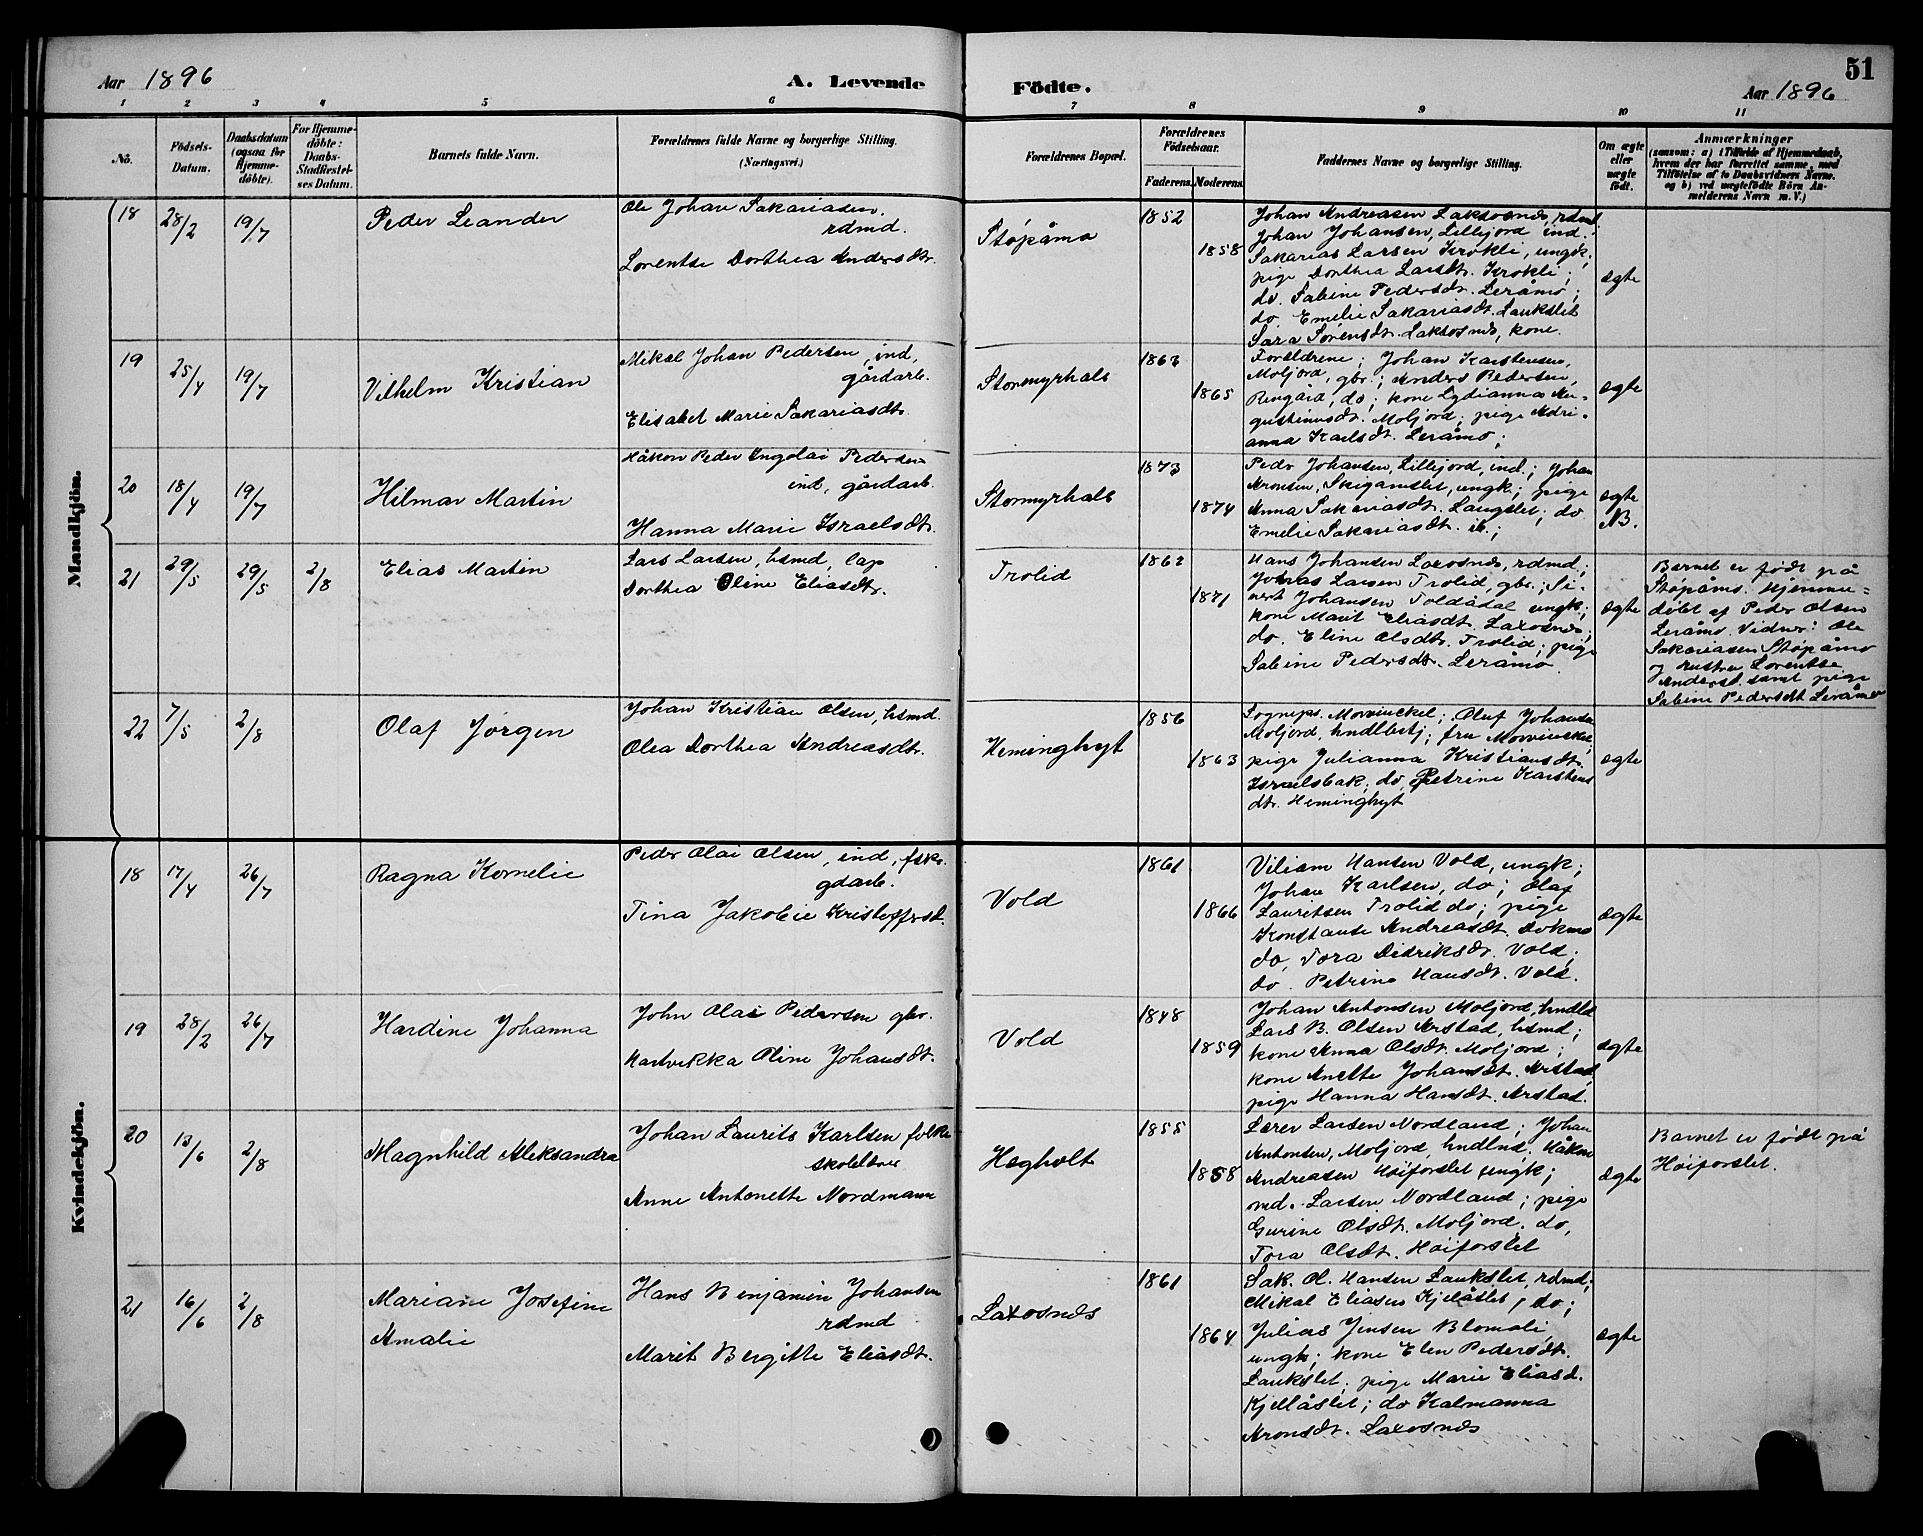 Aar 1896
A. Levende Födte.
Aar 1896
51
1 2 3 4 5 6 7 8 9 10 11
No.
Födsels-Datum.
Daabsdatum (ogsaa for Hjemme-döbte).
For Hjemme-döbte: Daabs-Stadfæstel-ses Datum.
Barnets fulde Navn.
Forældrenes fulde Navne og borgerlige Stilling.
(Næringsvei.)
Forældrenes Bopæl.
Forældrenes Födselsaar.
Faderens. Moderens.
Faddernes Navne og borgerlige Stilling.
Om ægte eller uægte födt.
Anmærkninger
(saasom: a) i Tilfælde af Hjemmedaab,
hvem der har forrettet samme, med
Tilföielse af to Daabsvidners Navne.
og b) ved uægtefödte Börn An-
melderens Navn m. V.)
Mandkjön.
18 28/2 19/7
Peder Leander
Ole Johan Sakariasen,
rdmd.
Lorentse Dorthea Andersdtr.
Støpåmo
1852
1858
Johan Andreasen Laksosnes, rdmd
Johan Johansen, Lillejord ind.
Sakarias Larsen Krokli, ungk;
pige Dorthea Larsdt. Krokli;
do. Sabine Pedersdt. Leråmo;
do. Emelie Sakariasdt. Laukslet
Sara Sørensdt. Laksosnes, kone.
ægte
19 25/4 19/7
Vilhelm Kristian
Mikal Johan Pedersen, ind,
gårdarb.
Elisabet Marie Sakariasdt.
Stormyrhals
1863
1865
Forældrene; Johan Karstensen,
Moljord, gbr.; Anders Pedersen,
Rengård, do; kone Lydianna Au-
gustinusdt. Moljord; pige Adri-
anna Karlsdt. Leråmo;
ægte
20 18/4 19/7
Hilmar Martin
Håkon Peder Ingolai Pedersen
ind, gårdarb.
Hanna Marie Israelsdt.
Stormyrhals
1873
1874
Peder Johansen, Lillejord, ind.; Johan
Aronsen, Skigamslet, ungk.; pige
Anna Sakariasdt. Laugslet; do
Emelie Sakariasdt. ib.;
ægte
N.
21 29/5 29/5 2/8
Elias Martin
Lars Larsen, hsmd, lap
Dorthea Oline Eliasdt.
Trolid
1862
1871
Hans Johansen Laxosnes, rdmd;
Johas Larsen Trolid, gbr.; Si-
vert Johansen Toldådal ungk;
kone Marit Eliasdt. Laxosnes;
do. Eline Olsdt. Trolid; pige
Sabine Pedersdt. Leråmo
ægte
Barnet er født på
Støpåmo. Hjemme-
døbt af Peder Olsen
Leråmo. Vidner: Ole
Sakariasen Støpåmo
og hustru Lorentse
Andersd. samt pige
Sabine Pedersdt Leråmo
22 7/5 2/8
Olaf Jørgen
Johan Kristian Olsen, hsmd.
Olea Dorthea Andreasdt.
Heminghyt
1856
1863
Sognepr. Morvinckel; Oluf Johansen
Moljord, hndlbstj; fru Morvinckel;
pige Julianna Kristiansdt.
Israelsbak; do, Petrine Karstens
dt. Heminghyt
ægte
Kvindekjön.
18 17/4 26/7
Ragna Kornelie
Peder Olai Olsen, ind, fsker.
gdarb.
Tina Jakobie Kristoffersdt.
Vold
1861
1866
Viliam Hansen Vold, ungk;
Johan Karlsen, do; Olaf
Lauritsen Trolid do; pige
Konstanse Andreasdt. Dokmo
do, Tora Didriksdt. Vold;
do. Petrine Hansdt. Vold.
ægte
19 28/2 26/7
Hardine Johanna
John Olai Pedersen gbr.
Hartvikka Oline Johansdt.
Vold
1848
1859
Johan Antonsen Moljord, hndld
Lars B. Olsen Arstad, hsmd;
kone Anna Olsdt. Moljord;
kone Anette Johansdt. Arstad
pige Hanna Hansdt. Arstad.
ægte
20 13/6 2/8
Magnhild Aleksandra
Johan Laurits Karlsen folke
skolelærer
Anne Antonette Nordmann
Hegholt
1855
1858
Lærer Larsen Nordland; Johan
Antonsen, Moljord, hndlnd. Håkon
Andreasen Høiforslet ungk;
md. Larsen Nordland; pige
Gurine Olsdt. Moljord. do,
Tora Olsdt. Høiforslet
ægte
Barnet er født på
Høiforslet.
21 16/6 2/8
Mariane Josefine
Amalie
Hans Benjamin Johansen
rdmd
Marit Bergitte Eliasdt.
Laxosnes
1861
1864
Sak. Ol. Hansen Laukslet, rdmd;
Mikal Eliasen Kjellåslet, do;
Julias Jensen Blomoli,
ungk; kone Elen Pedersdt.
Laukslet; pige Marie Eliasd.
Kjellåslet; do Kalmanna
Aronsdt. Laxosnes
ægte